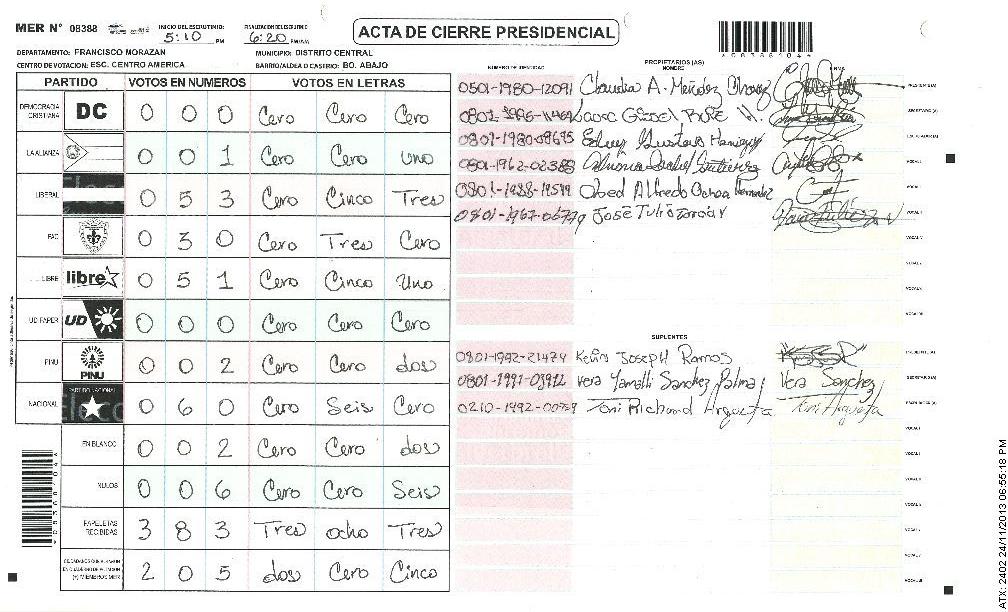 MER N° 08388 INICIO DEL ESCRUTINIO: 5:10 PM FINALIZACION DEL ESCRUTINIO 6:20 PM/AM
ACTA DE CIERRE PRESIDENCIAL
DEPARTAMENTO: FRANCISCO MORAZAN MUNICIPIO: DISTRITO CENTRAL
CENTRO DE VOTACION: ESC. CENTRO AMERICA BARRIO/ALDEA O CASERIO: BO. ABAJO
PARTIDO VOTOS EN NUMEROS VOTOS EN LETRAS
DEMOCRACIA CRISTIANA DC 0 0 0 Cero Cero Cero
LA ALIANZA 0 0 1 Cero Cero Uno
LIBERAL 0 5 3 Cero Cinco Tres
PAC 0 3 0 Cero Tres Cero
LIBRE libre 0 5 1 Cero Cinco Uno
UD FAPER UD 0 0 0 Cero Cero Cero
PINU PINU 0 0 2 Cero Cero dos
NACIONAL PARTIDO NACIONAL 0 6 0 Cero Seis Cero
EN BLANCO 0 0 2 Cero Cero dos
NULOS 0 0 6 Cero Cero Seis
PAPELETAS RECIBIDAS 3 8 3 Tres ocho Tres
CIUDADANOS QUE VOTARON EN CUADERNO DE VOTACION (+) MIEMBROS MER 2 0 5 dos Cero Cinco
PROPIETARIOS (AS)
NUMERO DE IDENTIDAD NOMBRE FIRMA
0501-1980-12091 Claudia A. Méndez Chavez PRESIDENTE(A)
Laura Gissel H. SECRETARIO(A)
0801-1980-08695 Gustavo ESCRUTADOR(A)
0801-1962-02388 Gutierrez VOCAL I
Obed Alfredo Ochoa Hernandez
José Julio
SUPLENTES
0801-1992-21474 Kevin Joseph Ramos PRESIDENTE(A)
0801-1991-03912 Vera Yamalli Sanchez Palma Vera Sanchez SECRETARIO(A)
Toni Richard Argueta Toni Argueta ESCRUTADOR(A)
ATX: 2402 24/11/2013 06:55:18 PM